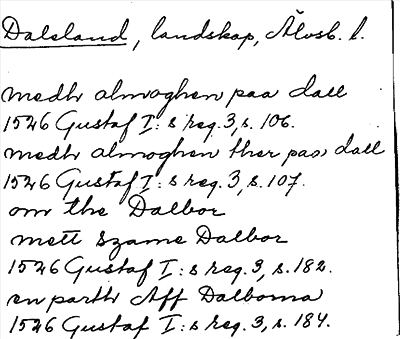 Dalsland, landskap, Älvsb. l.
medh almoghen paa dall
1526 Gustaf I: s reg. 3, s. 106.
medh almoghen ther paa dall
1526 Gustaf I: s reg. 3, s. 107.
om the Dalbor
mett szame Dalbor
1526 Gustaf I: s reg. 3, s. 182.
en parth Aff Dalboma
1526 Gustaf I: s reg. 3, s. 184.